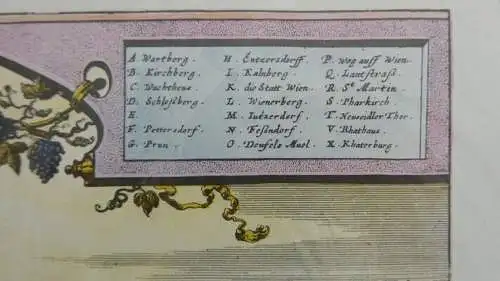 A. Wartberg.
B. Kirchberg.
C. Wachthaus.
D. Schloßberg.
E.
F. Pettersdorf.
G. Prun.
H. Entzersdorff.
I. Kalnberg.
K. die Statt Wien.
L. Wienerberg.
M. Intzerdorf.
N. Fesendorf.
O. Deufels Muel.
P. Weg auff Wien.
Q. Lantstrasd.
R. St. Martin.
S. Pharkirch.
T. Neuseidler Thor.
V. Rhathaus.
X. Khaterburg.